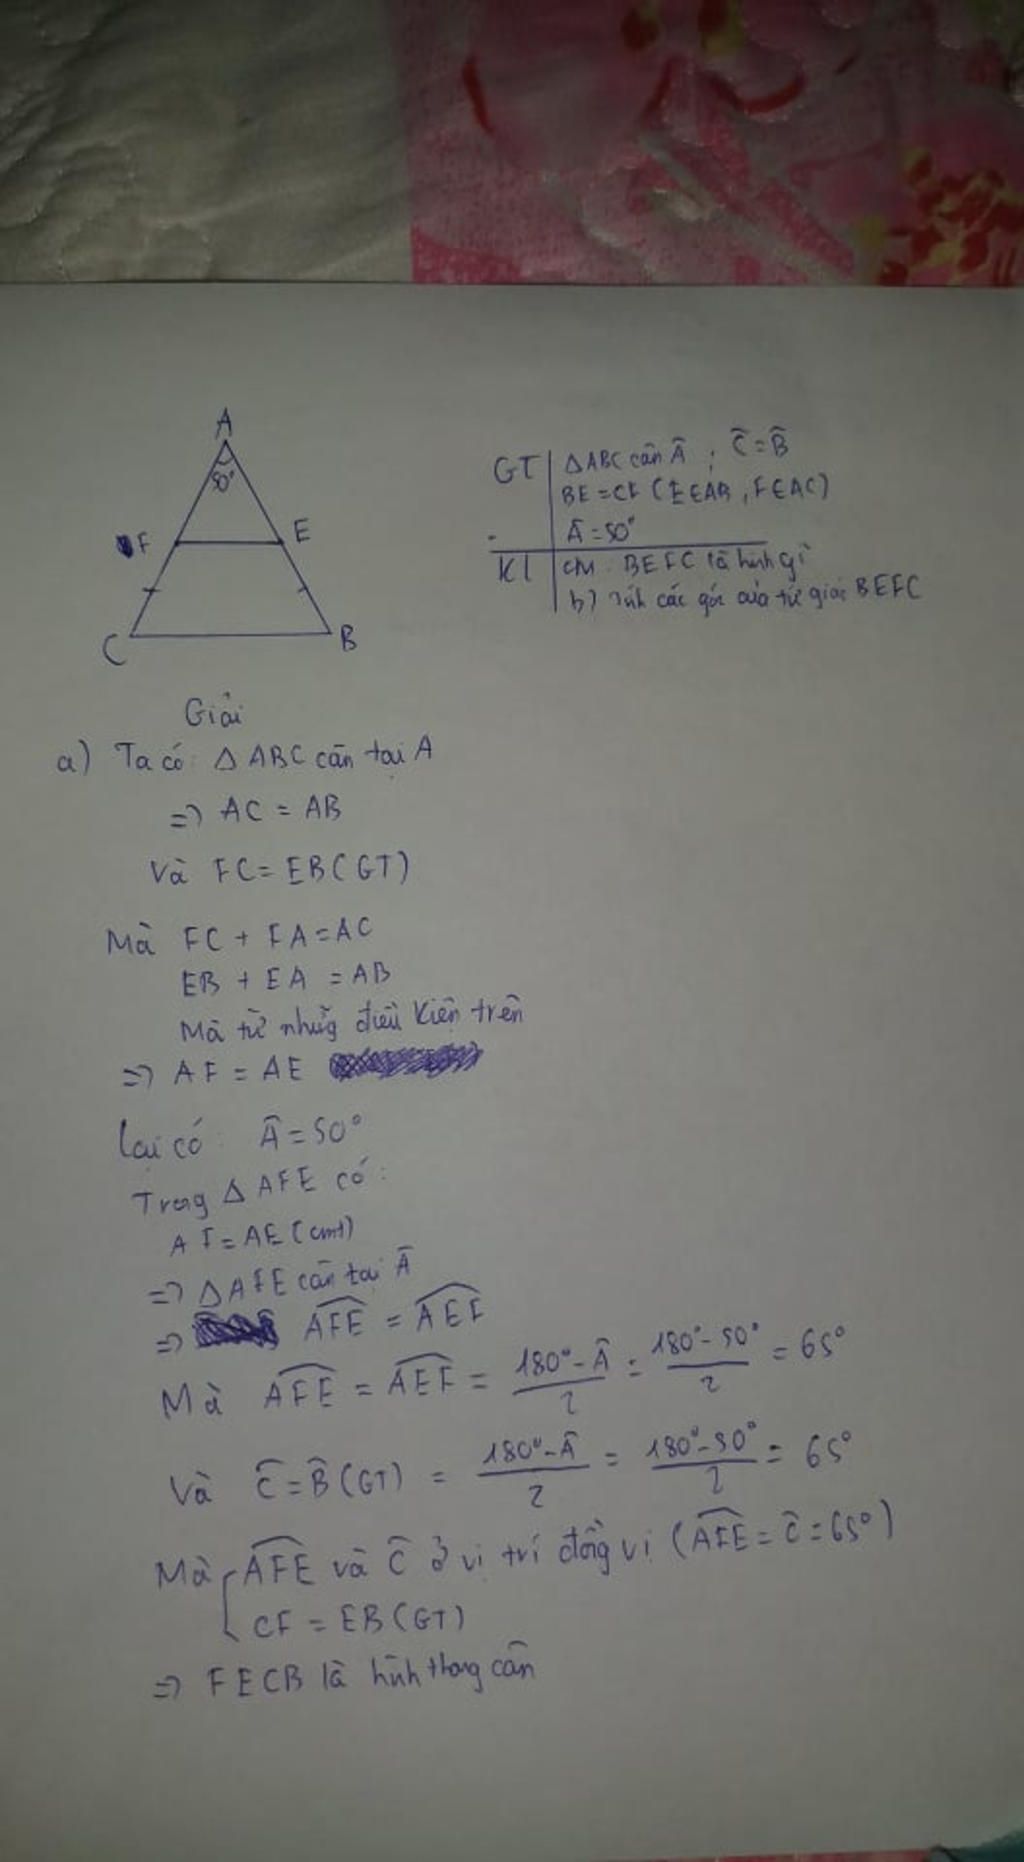 A
50°
F
E
C
B
GT ΔABC cân Â, Ĉ = B̂
BE = CF (E∈AB, F∈AC)
Â = 50°
KL CM: BEFC là hình gì
b) Tính các góc của tứ giác BEFC
Giải
a) Ta có: Δ ABC cân tại A
=> AC = AB
Và FC = EB (GT)
Mà FC + FA = AC
EB + EA = AB
Mà từ những điều kiện trên
=> AF = AE
Lại có: Â = 50°
Trong Δ AFE có:
AF = AE (cmt)
=> Δ AFE cân tại Â
=> \widehat{AFE} = \widehat{AEF}
Mà \widehat{AFE} = \widehat{AEF} = (180° - Â)/2 = (180° - 50°)/2 = 65°
Và Ĉ = B̂ (GT) = (180° - Â)/2 = (180° - 50°)/2 = 65°
Mà { \widehat{AFE} và Ĉ ở vị trí đồng vị (\widehat{AFE} = Ĉ = 65°)
CF = EB (GT)
=> FECB là hình thang cân